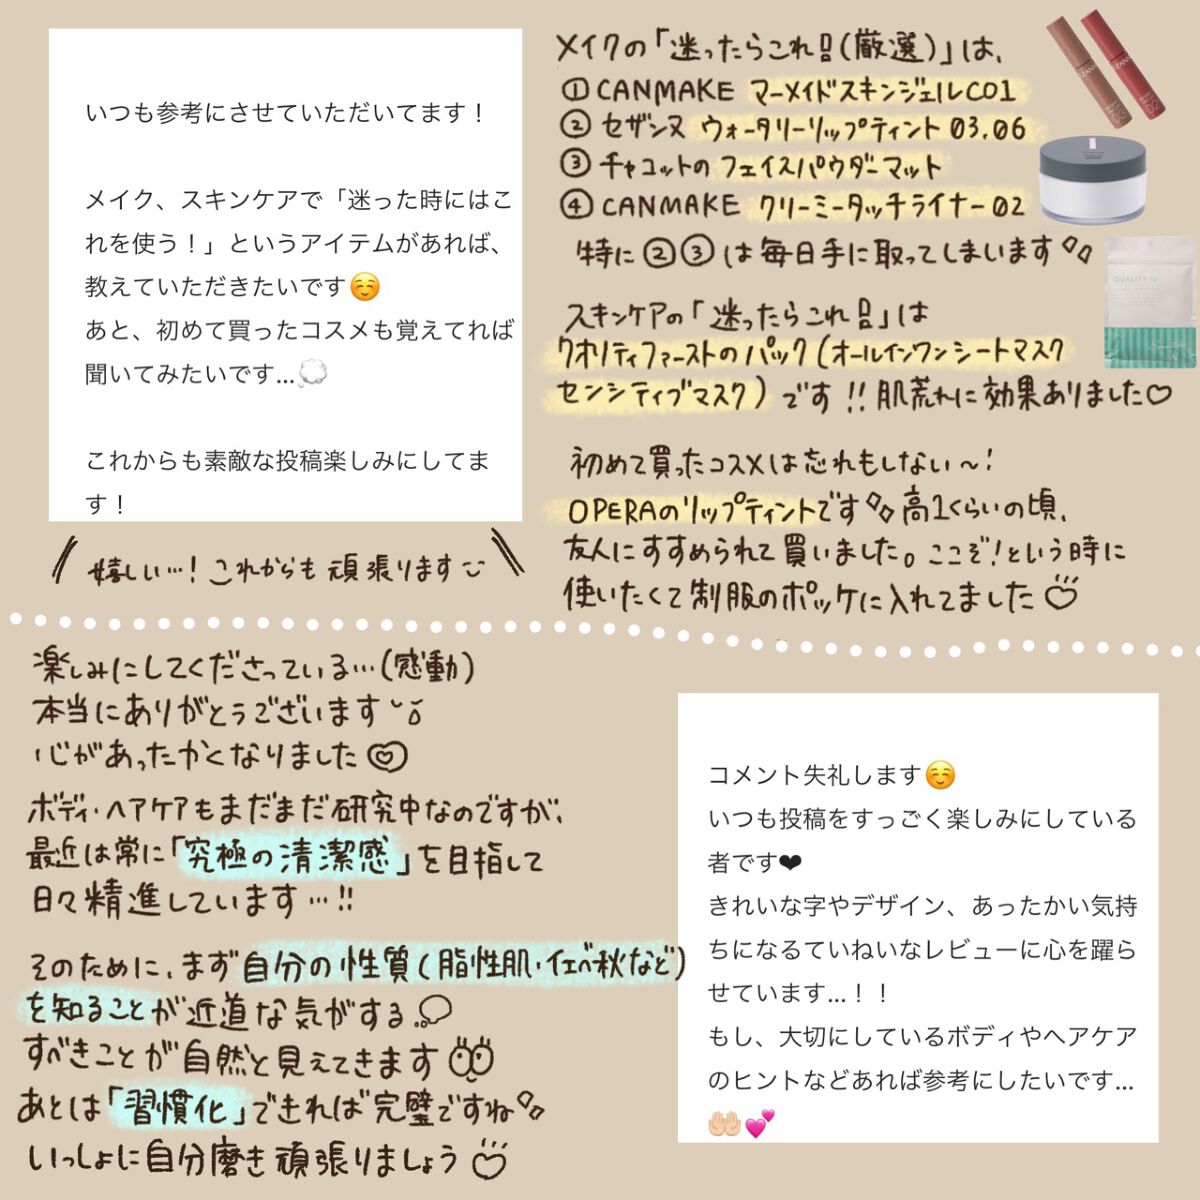 いつも参考にさせていただいてます！
メイク、スキンケアで「迷った時にはこ
れを使う！」というアイテムがあれば、
教えていただきたいです☺️
あと、初めて買ったコスメも覚えてれば
聞いてみたいです...💭
これからも素敵な投稿楽しみにしてま
す！
嬉しい…！これからも頑張ります
メイクの「迷ったらこれ!!(厳選)」は、
①CANMAKE マーメイドスキンジェルC01
②セザンヌ ウォータリーリップティント03.06
③チャコットの フェイスパウダーマット
④CANMAKE クリーミータッチライナー02
特に②③は毎日手に取ってしまいます
QUALITY 1st
スキンケアの「迷ったらこれ!!」は
クオリティファーストのパック(オールインワンシートマスク
センシティブマスク)です!!肌荒れに効果ありました♡
初めて買ったコスメは忘れもしない～！
OPERAのリップティントです 高1くらいの頃、
友人にすすめられて買いました。ここぞ！という時に
使いたくて制服のポッケに入れてました
楽しみにしてくださっている…(感動)
本当にありがとうございます
心があったかくなりました
ボディ・ヘアケアもまだまだ研究中なのですが、
最近は常に「究極の清潔感」を目指して
日々精進しています…!!
そのために、まず自分の性質(脂性肌・イエベ秋など)
を知ることが近道な気がする
すべきことが自然と見えてきます
あとは「習慣化」できれば完璧ですね
いっしょに自分磨き頑張りましょう
コメント失礼します☺️
いつも投稿をすっごく楽しみにしている
者です❤
きれいな字やデザイン、あったかい気持
ちになるていねいなレビューに心を躍ら
せています...！！
もし、大切にしているボディやヘアケア
のヒントなどあれば参考にしたいです...
🤲🏻💕